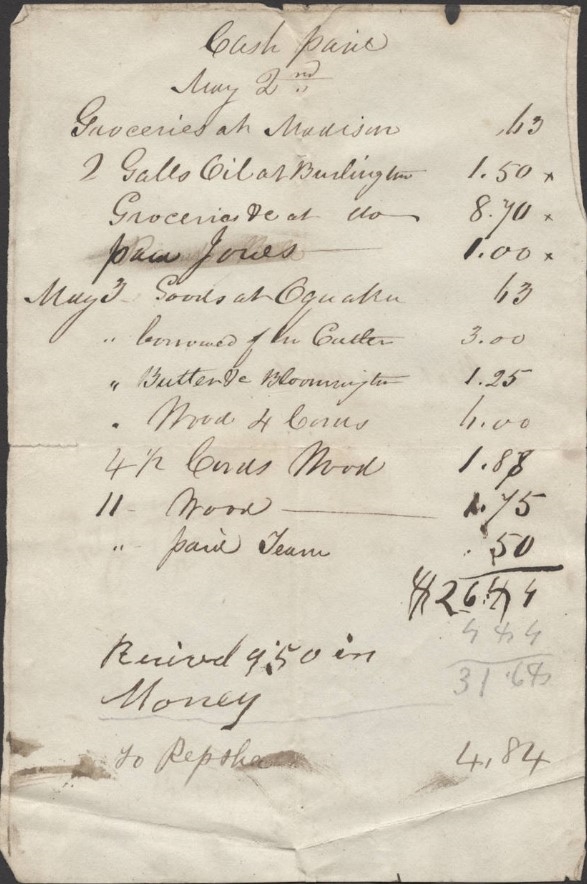 Cash paid
May 2nd
Groceries at Madison .63
2 Galls Oil at Burlington 1.50 x
Groceries &c at do 8.70 x
paid Jones 1.00 x
May 3 Goods at Oquaka 63
" borrowed of Mr Cutler 3.00
" Butter &c Bloomington 1.25
" Wood 4 Cords 6.00
4 1/2 Cords Wood 1.88
11 - Wood 1.75
" paid Team .50
$26.84
4 84
31.68
Recived 9.50 in
Money
to 4.84